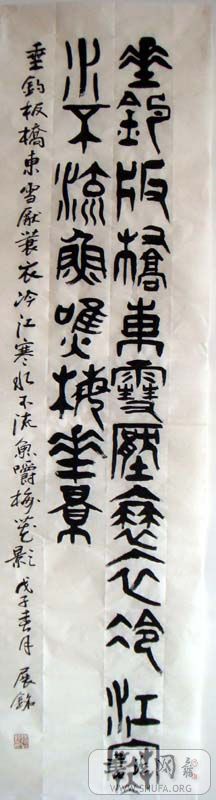 垂釣版橋東雪壓蓑衣冷江寒
水不流魚嚼梅華景
垂釣板橋東雪壓蓑衣冷江寒水不流魚嚼梅花影 戊子春月 展銘
WWW.SHUFA.ORG